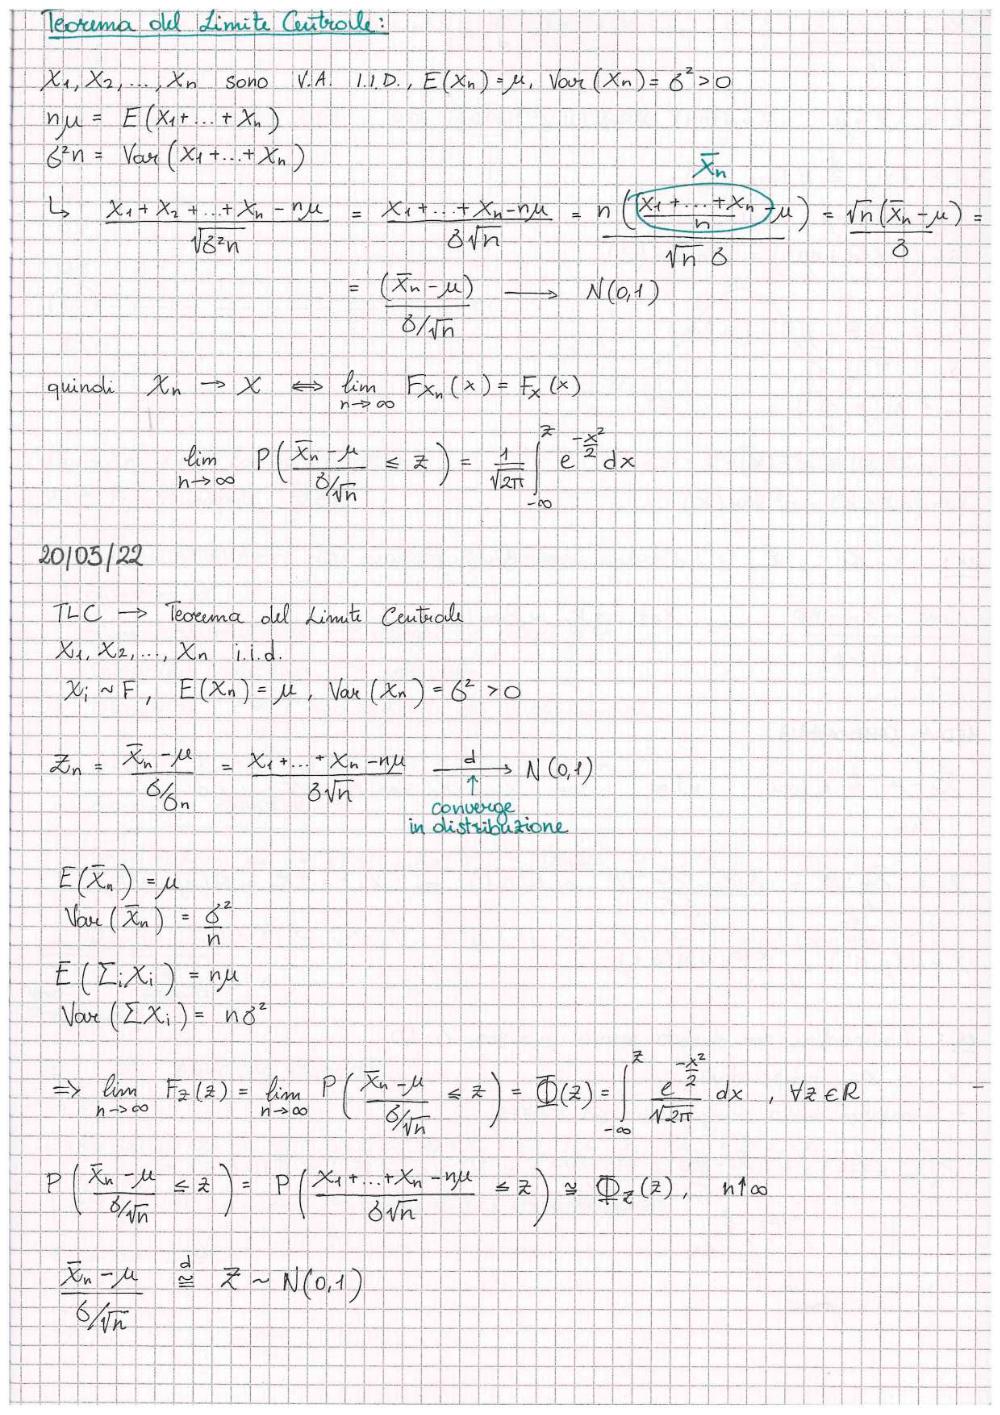 Teorema del Limite Centrale:
X₁, X₂, ..., Xn sono V.A. I.I.D., E(Xn) = μ, Var(Xn) = σ² > 0
nμ = E(X₁ + ... + Xn)
σ²n = Var(X₁ + ... + Xn)
X̄n
↳ (X₁ + X₂ + ... + Xn - nμ)/√(σ²n) = (X₁ + ... + Xn - nμ)/(σ√n) = n((X₁ + ... + Xn)/n - μ)/(√n σ) = √n(X̄n - μ)/σ =
= (X̄n - μ)/(σ/√n) ⟶ N(0,1)
quindi Xn → X ⟺ lim n→∞ F_Xn(x) = F_x(x)
lim n→∞ P((X̄n - μ)/(σ/√n) ≤ z) = 1/√2π ∫_{-∞}^{z} e^{-x²/2} dx
20/05/22
TLC → Teorema del Limite Centrale
X₁, X₂, ..., Xn i.i.d.
Xi ~ F, E(Xn) = μ, Var(Xn) = σ² > 0
Zn = (X̄n - μ)/(σ/σn) = (X₁ + ... + Xn - nμ)/(σ√n) ⟶d N(0,1)
↑
converge
in distribuzione
E(X̄n) = μ
Var(X̄n) = σ²/n
E(Σi Xi) = nμ
Var(ΣXi) = nσ²
=> lim n→∞ F_Z(z) = lim n→∞ P((X̄n - μ)/(σ/√n) ≤ z) = Φ(z) = ∫_{-∞}^{z} e^{-x²/2}/√2π dx, ∀z ∈ R
P((X̄n - μ)/(σ/√n) ≤ z) = P((X₁ + ... + Xn - nμ)/(σ√n) ≤ z) ≅ Φ_Z(z), n↑∞
(X̄n - μ)/(σ/√n) ≅d Z ~ N(0,1)